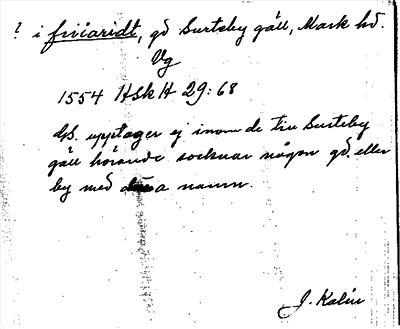 ? i friiaridt, gd Surteby gäll, Mark hd.
Vg
1554 HSkH 29:68
ds. upptager ej inom de till Surteby
gäll hörande socknar någon gd. eller
by med detta namn.
J. Kalén